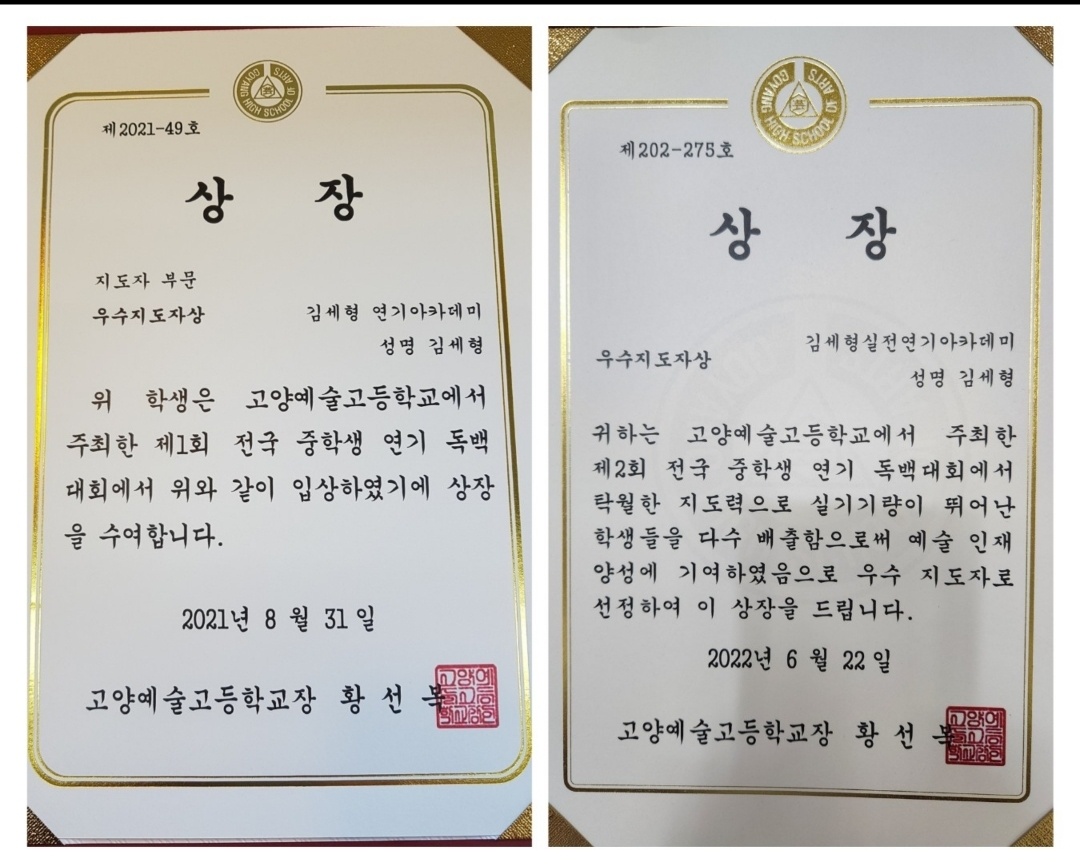 GOYANG HIGH SCHOOL OF ARTS
제2021-49호
상 장
지도자 부문
우수지도자상 김세형 연기아카데미
성명 김세형
위 학생은 고양예술고등학교에서
주최한 제1회 전국 중학생 연기 독백
대회에서 위와 같이 입상하였기에 상장
을 수여합니다.
2021년 8 월 31 일
고양예술고등학교장 황 선 목
GOYANG HIGH SCHOOL OF ARTS
제202-275호
상 장
김세형실전연기아카데미
우수지도자상
성명 김세형
귀하는 고양예술고등학교에서 주최한
제2회 전국 중학생 연기 독백대회에서
탁월한 지도력으로 실기기량이 뛰어난
학생들을 다수 배출함으로써 예술 인재
양성에 기여하였음으로 우수 지도자로
선정하여 이 상장을 드립니다.
2022년 6 월 22 일
고양예술고등학교장 황 선 목